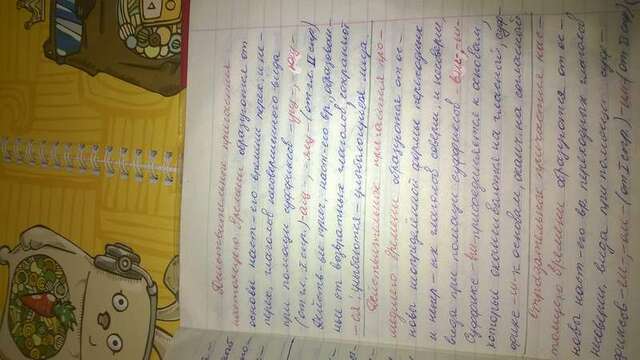 Действительные причастия
настоящего времени образуются от
основы наст-его времени перех. и не-
перех. глаголов несовершенного вида
при помощи суффиксов -ущ-, -ющ-
(от гл. I спр.) -ащ-, -ящ- (от гл. II спр)
Действ-ые прич. наст-его вр., образован-
ные от возвратных глаголов, сохраняют
-ся: улыбаются - улыбающийся
Действительные причастия про-
шедшего времени образуются от ос-
новы неопределённой формы переходных
и непер-ых глаголов соверш и несоверш
вида при помощи суффиксов -вш-, -ш-
Суффикс -вш- присоединяется к основам,
которые оканчиваются на гласный, суф-
фикс -ш- к основам, оканч-ся на согласный
Страдательные причастия нас-
тоящего времени образуются от ос-
новы наст-его вр. переходных глаголов
несоверш. вида при помощи суф-
фиксов -ем-, -ом- (от I спр.) -им- (от II спр)